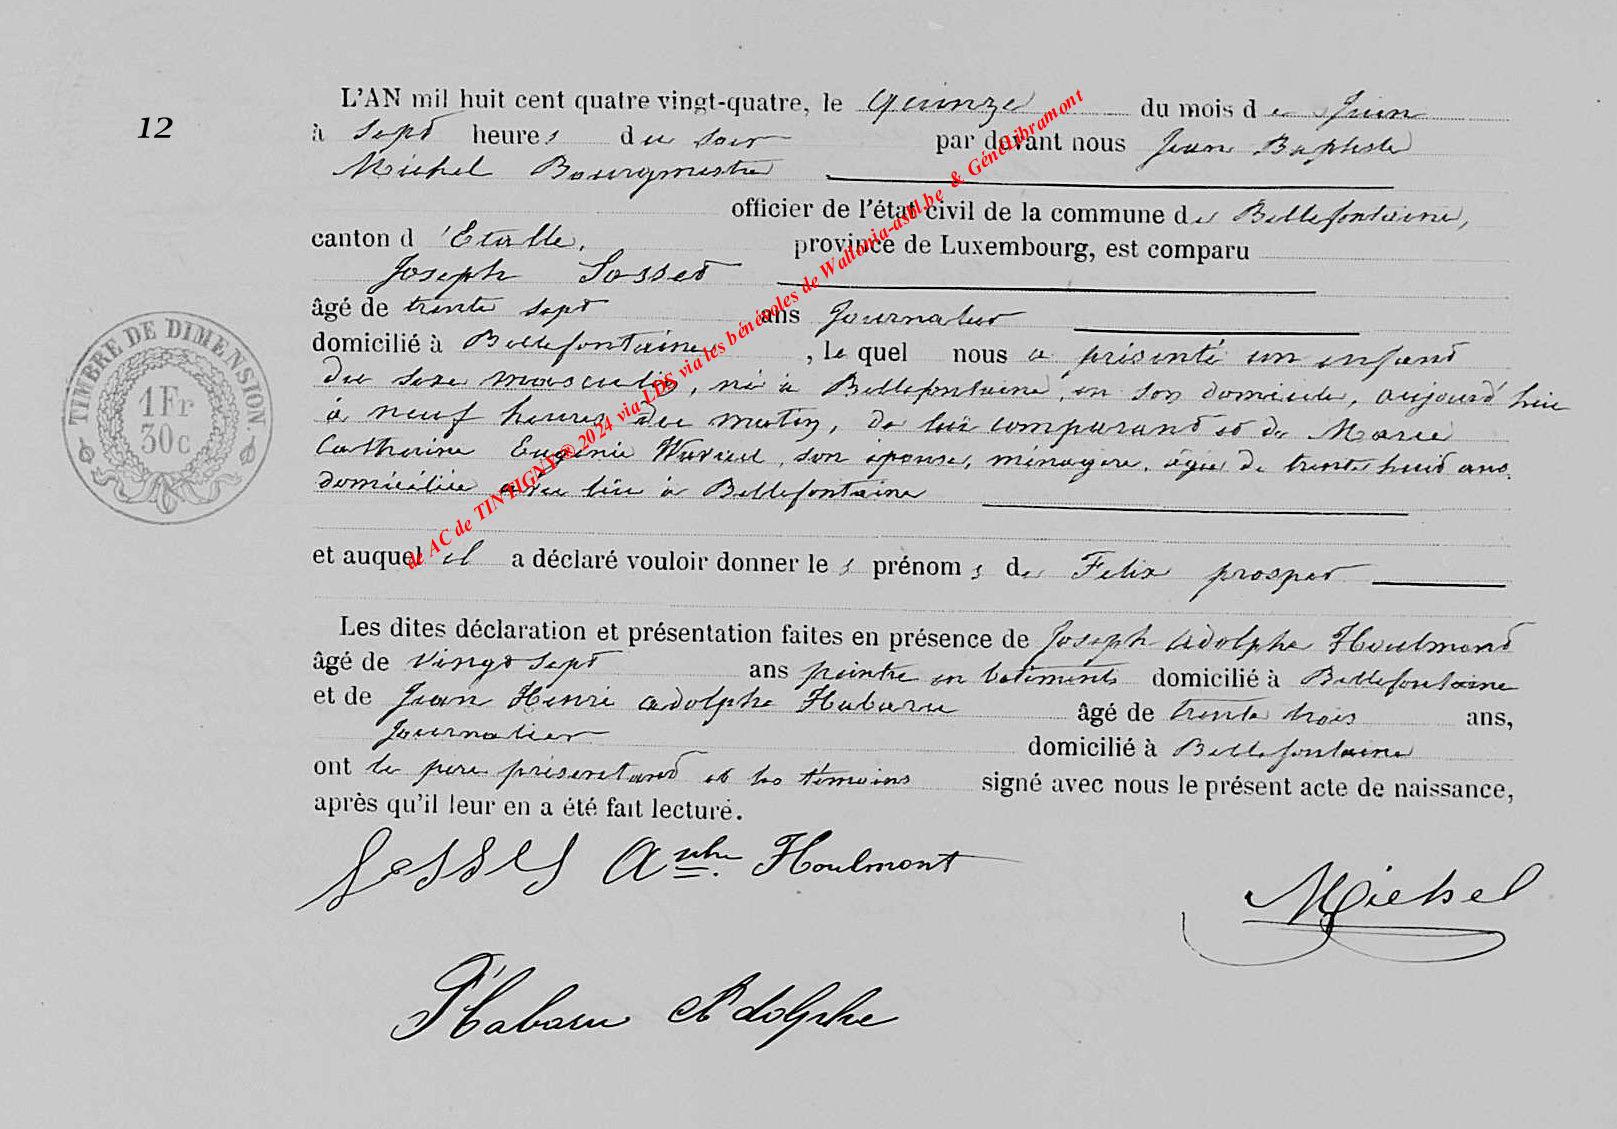 12
L'AN mil huit cent quatre vingt-quatre, le quinze du mois de Juin
à sept heures du soir par devant nous Jean Baptiste
Michel Bourgmestre
officier de l'état civil de la commune de Bellefontaine,
canton d'Etalle, province de Luxembourg, est comparu
Joseph Sosset
âgé de trente sept ans Journalier
domicilié à Bellefontaine, le quel nous a présenté un enfant
du sexe masculin, né à Bellefontaine, en son domicile, aujourd'hui
à neuf heures du matin, de lui comparant et de Marie
Catherine Eugénie, son épouse, ménagère, âgée de trente huit ans
domiciliée avec lui à Bellefontaine
et auquel il a déclaré vouloir donner les prénoms de Felix prosper
Les dites déclaration et présentation faites en présence de Joseph Adolphe Houlmont
âgé de vingt sept ans peintre en batiments domicilié à Bellefontaine
et de Jean Henri adolphe Habaru âgé de trente trois ans,
Journalier domicilié à Bellefontaine
ont le père présentant et les témoins signé avec nous le présent acte de naissance,
après qu'il leur en a été fait lecture.
Houlmont
Michel
Habaru Adolphe
TIMBRE DE DIMENSION.
1Fr
30c
de AC de TINTIGNY® 2024 via LDS via les bénévoles de Wallonia-asbl.be & GénéLibramont